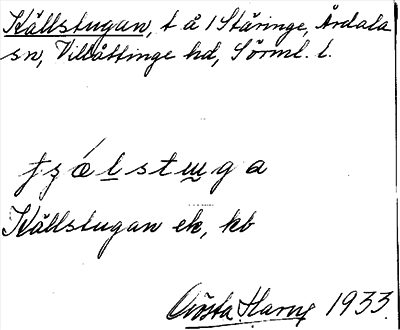 Källstugan, t å 1 Stäringe, Årdala
sn, Villåttinge hd, Sörml. l.
Källstugan ek, kb
Gösta Harne 1933.